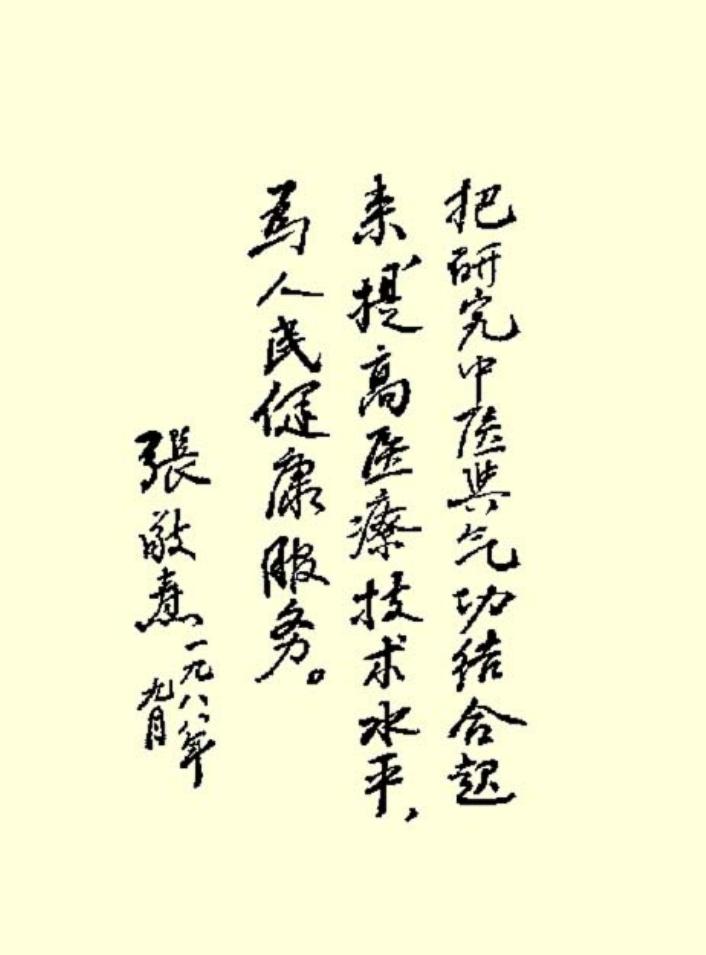 把研究中医與气功结合起
来提高医療技术水平，
為人民健康服务。
張敬焘
一九八八年
九月